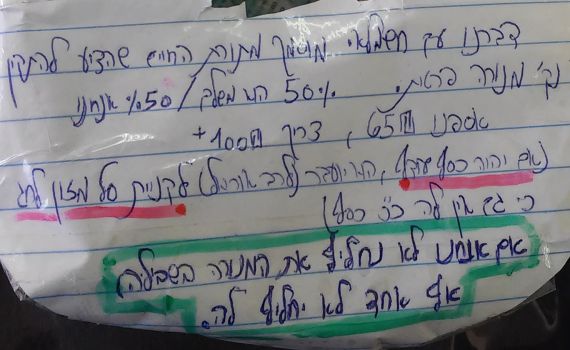 דברנו עם חשמלאי מוסמך מתנת החיים שהציע להתקין
לה מנורה פרטית. 50% הוא משלם / 50% אנחנו
אספנו 65₪, צריך 100₪+
(אם יהיה כסף עודף, הוא יועבר (לרב אוריאל) לקניית סל מזון לחג
כי גם אין לה כ"כ כסף)
אם אנחנו לא נחליף את המנורה בשבילה,
אף אחד לא יחליף לה.